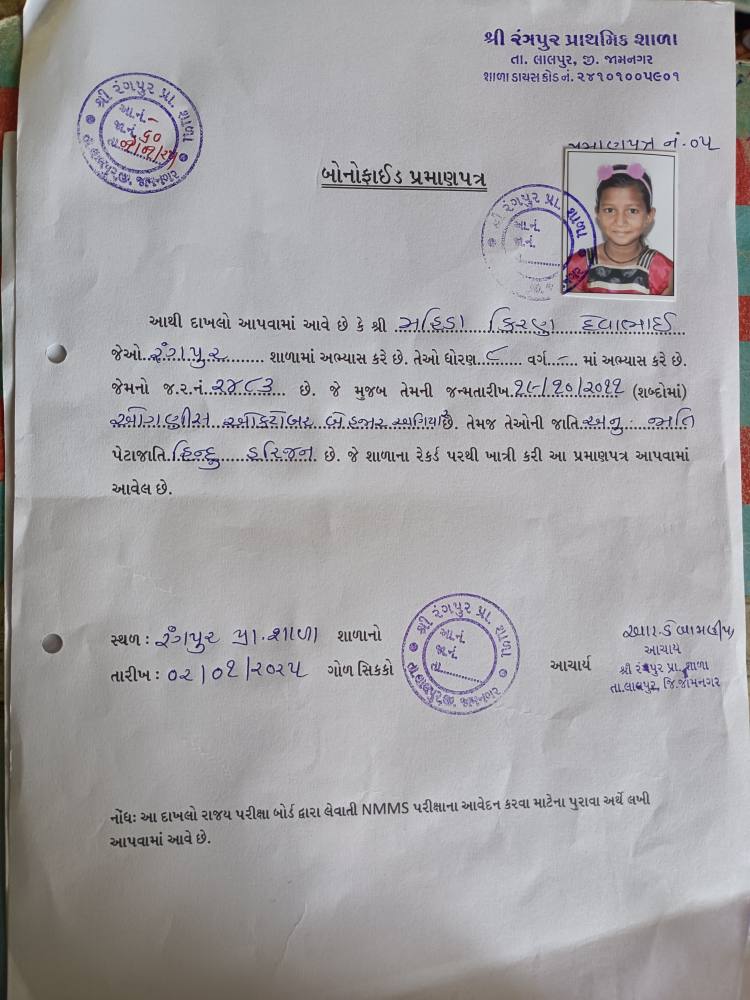 શ્રી રંગપુર પ્રાથમિક શાળા
તા. લાલપુર, જી. જામનગર
શાળા ડાયસ કોડ નં. ૨૪૧૦૧૦૦૫૯૦૧
શ્રી રંગપુર પ્રા. શાળા
આ.નં.-
જા.નં. ૬૦
તા.
પ્રમાણપત્ર નં.-૦૫
બોનોફાઈડ પ્રમાણપત્ર
શ્રી રંગપુર પ્રા. શાળા
આ.નં.
જા.નં.
આથી દાખલો આપવામાં આવે છે કે શ્રી મહિડા કિરણ દેવાભાઈ
જેઓ રંગપુર શાળામાં અભ્યાસ કરે છે. તેઓ ધોરણ ૮ વર્ગ - માં અભ્યાસ કરે છે.
જેમનો જ.ર.નં. ૨૪૮૩ છે. જે મુજબ તેમની જન્મતારીખ ૧૯/૧૦/૨૦૧૧ (શબ્દોમાં)
ઓગણીસ ઓક્ટોબર બે હજાર અગિયાર છે. તેમજ તેઓની જાતિ અનુ. જાતિ
પેટાજાતિ હિન્દુ હરિજન છે. જે શાળાના રેકર્ડ પરથી ખાત્રી કરી આ પ્રમાણપત્ર આપવામાં
આવેલ છે.
સ્થળ : રંગપુર પ્રા. શાળા શાળાનો
તારીખ : ૦૨/૦૧/૨૦૨૫ ગોળ સિકકો
શ્રી રંગપુર પ્રા. શાળા
આ.નં.
જા.નં.
તા.
તા.લાલપુર, જી. જામનગર
આચાર્ય
આચાર્ય
શ્રી રંગપુર પ્રા. શાળા
તા.લાલપુર, જિ.જામનગર
નોંધઃ આ દાખલો રાજય પરીક્ષા બોર્ડ દ્વારા લેવાતી NMMS પરીક્ષાના આવેદન કરવા માટેના પુરાવા અર્થે લખી
આપવામાં આવે છે.